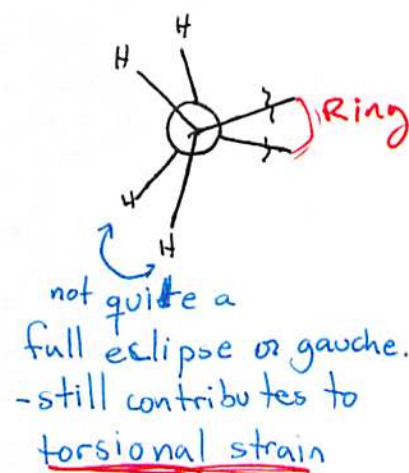 H
H
Ring
H
H
not quite a
full eclipse or gauche.
-still contributes to
torsional strain